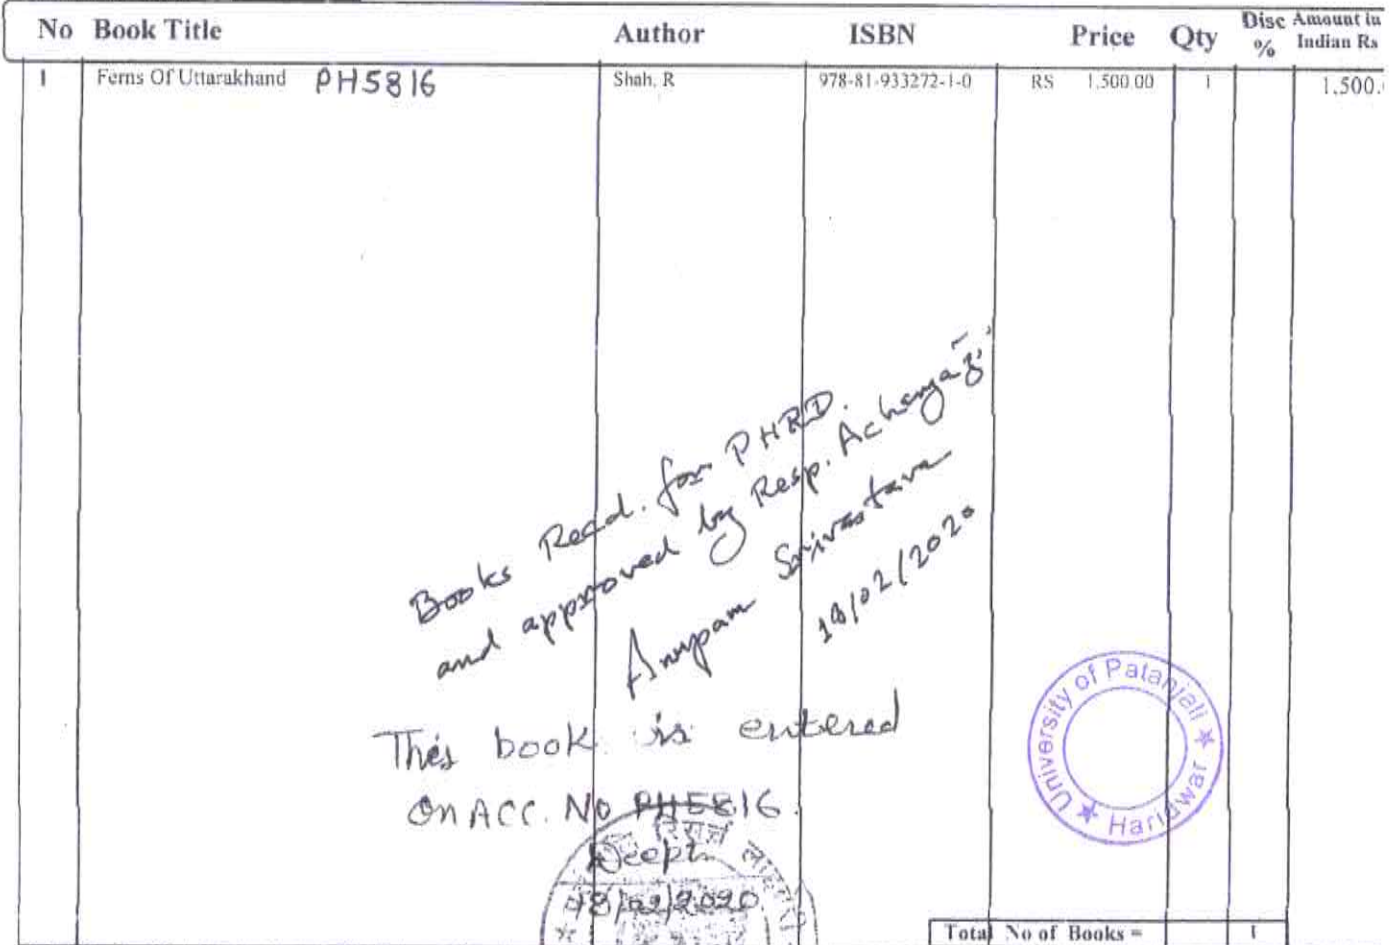 No Book Title Author ISBN Price Qty Disc % Amount in Indian Rs
1 Ferns Of Uttarakhand PH5816 Shah, R 978-81-933272-1-0 RS 1,500.00 1 1,500.
Books Recd. for PHRD.
and approved by Resp. Acharyaji.
Anupam Srivastava
18/02/2020
This book is entered
On ACC. No PH5816.
Deepti
18/02/2020
University of Patanjali
Haridwar
Total No of Books = 1